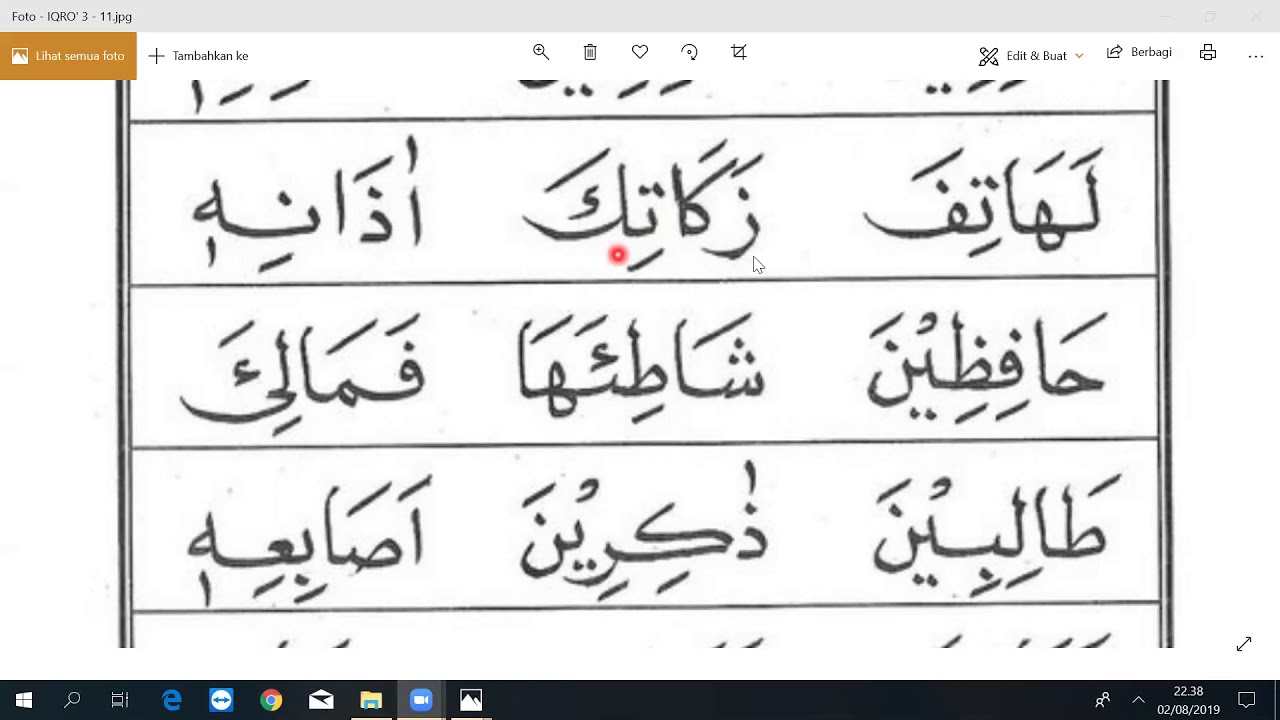 Foto - IQRO' 3 - 11.jpg
Lihat semua foto Tambahkan ke Edit & Buat Berbagi
لَهَاتِفَ زَكَاتِكَ اٰذَانِهٖ
حَافِظِيْنَ شَاطِئَهَا فَمَالِئَ
طَالِبِيْنَ ذٰكِرِيْنَ اَصَابِعِهٖ
22.38
02/08/2019